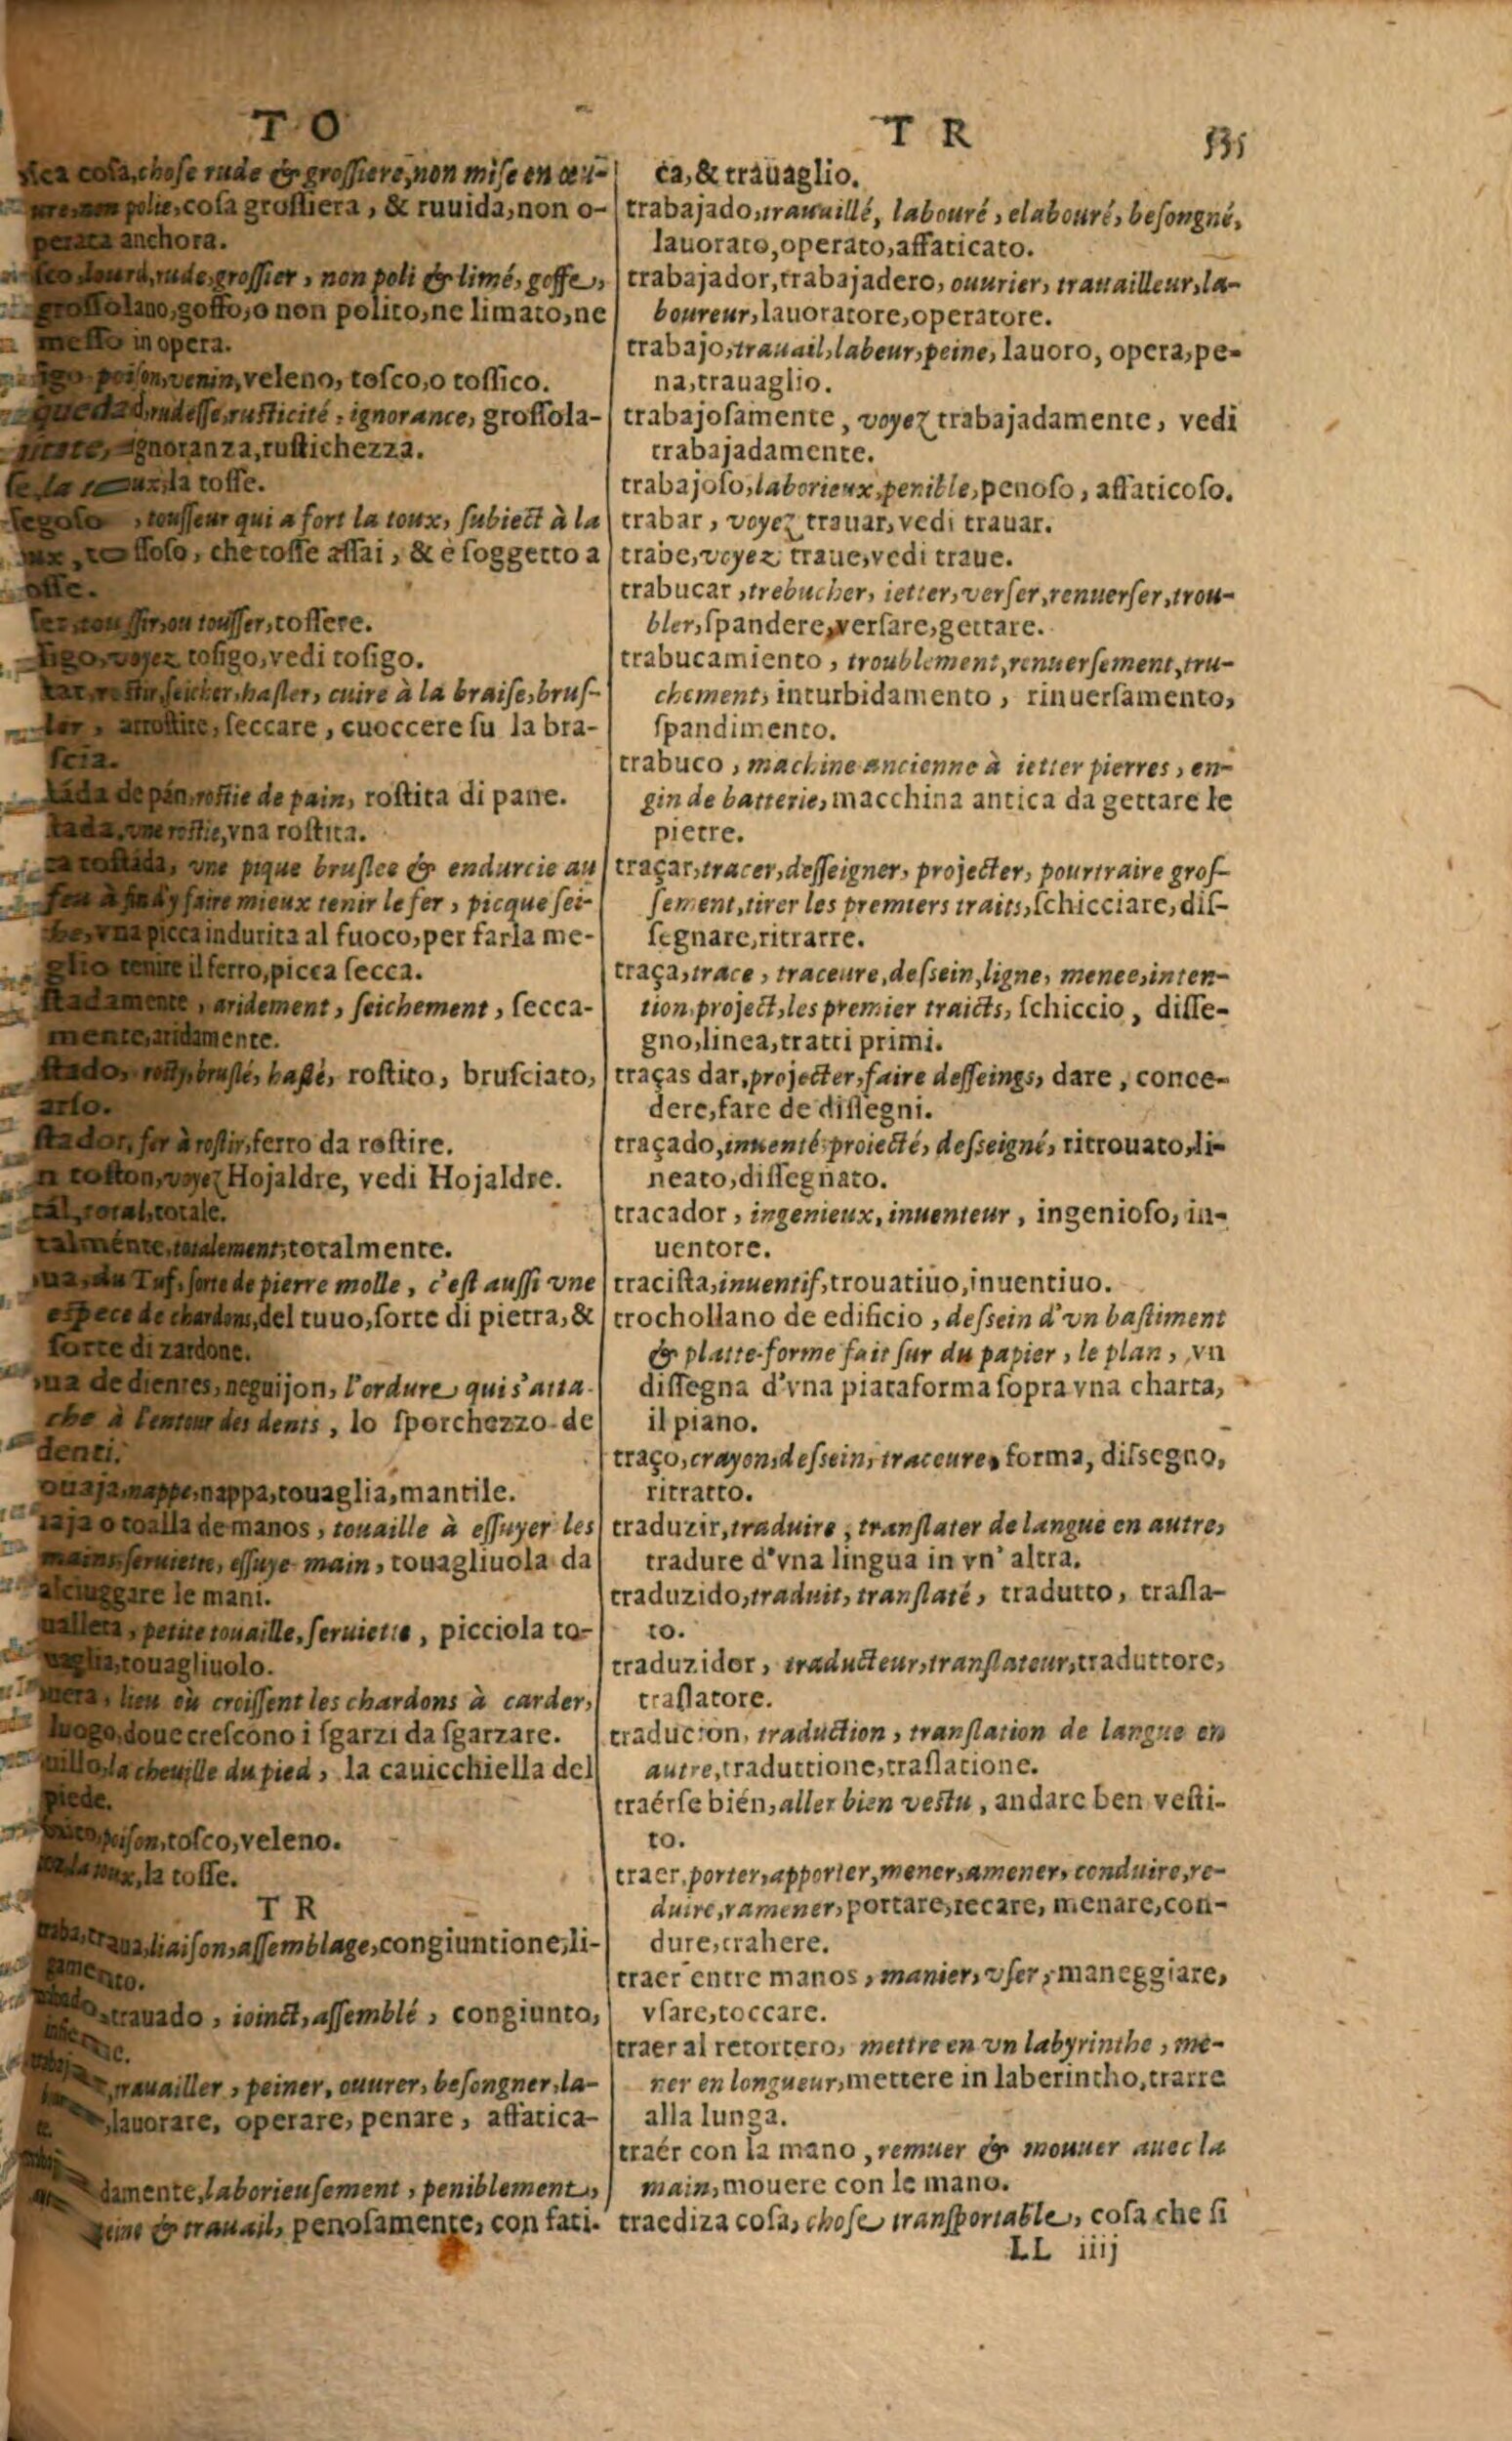 T O
sica cosa, chose rude & grossiere, non mise en œu-
ure, non polie, cosa grossiera, & ruuida, non o-
perata anchora.
sco, lourd, rude, grossier, non poli & limé, goffe,
grossolano, goffo, o non polito, ne limato, ne
messo in opera.
poison, venin, veleno, tosco, o tossico.
quedad, rudesse, rusticité, ignorance, grossola-
ignoranza, rustichezza.
la toux, la tosse.
segoso, tousseur qui a fort la toux, subiect à la
tossoso, che tosse assai, & è soggetto a
osse.
ser, toussir, ou tousser, tossere.
sigo, voyez tosigo, vedi tosigo.
tar, rostir, seicher, hasler, cuire à la braise, brus-
ler, arrostire, seccare, cuoccere su la bra-
scia.
tada de pan, rostie de pain, rostita di pane.
tada, vne rostie, vna rostita.
ca tostada, vne pique bruslee & endurcie au
feu à fin d'y faire mieux tenir le fer, picque sei-
che, vna picca indurita al fuoco, per farla me-
glio tenire il ferro, picca secca.
stadamente, aridement, seichement, secca-
mente, aridamente.
stado, rosty, bruslé, haslé, rostito, brusciato,
arso.
stador, fer à rostir, ferro da rostire.
n toston, voyez Hojaldre, vedi Hojaldre.
tal, total, totale.
talménte, totalement, totalmente.
ua, du Tuf, sorte de pierre molle, c'est aussi vne
espece de chardons, del tuuo, sorte di pietra, &
sorte di zardone.
ua de dientes, neguijon, l'ordure qui s'atta-
che à l'entour des dents, lo sporchezzo de
denti.
ouaja, nappe, nappa, touaglia, mantile.
uaja o toalla de manos, touaille à essuyer les
mains, seruiette, essuye-main, touagliuola da
asciuggare le mani.
ualleta, petite touaille, seruiette, picciola to-
uaglia, touagliuolo.
uera, lieu où croissent les chardons à carder,
luogo, doue crescono i sgarzi da sgarzare.
uillo, la cheuille du pied, la cauicchiella del
piede.
poison, tosco, veleno.
la toux, la tosse.
T R
traba, traua, liaison, assemblage, congiuntione, li-
gamento.
trauado, ioinct, assemblé, congiunto,
trauailler, peiner, ouurer, besongner, la-
lauorare, operare, penare, affatica-
damente, laborieusement, peniblement,
peine & trauail, penosamente, con fati-
T R
535
ca, & trauaglio.
trabajado, trauaillé, labouré, elabouré, besongné,
lauorato, operato, affaticato.
trabajador, trabajadero, ouurier, trauailleur, la-
boureur, lauoratore, operatore.
trabajo, trauail, labeur, peine, lauoro, opera, pe-
na, trauaglio.
trabajosamente, voyez trabajadamente, vedi
trabajadamente.
trabajoso, laborieux, penible, penoso, affaticoso.
trabar, voyez trauar, vedi trauar.
trabe, voyez traue, vedi traue.
trabucar, trebucher, ietter, verser, renuerser, trou-
bler, spandere, versare, gettare.
trabucamiento, troublement, renuersement, tru-
chement, inturbidamento, rinuersamento,
spandimento.
trabuco, machine ancienne à ietter pierres, en-
gin de batterie, macchina antica da gettare le
pietre.
traçar, tracer, desseigner, projecter, pourtraire gros-
sement, tirer les premiers traits, schicciare, dis-
segnare, ritrarre.
traça, trace, traceure, dessein, ligne, menee, inten-
tion, project, les premier traicts, schiccio, disse-
gno, linea, tratti primi.
traças dar, projecter, faire desseings, dare, conce-
dere, fare de dissegni.
traçado, inuenté, proiecté, desseigné, ritrouato, li-
neato, dissegnato.
tracador, ingenieux, inuenteur, ingenioso, in-
uentore.
tracista, inuentif, trouatiuo, inuentiuo.
trochollano de edificio, dessein d'vn bastiment
& platte-forme fait sur du papier, le plan, vn
dissegna d'vna piataforma sopra vna charta,
il piano.
traço, crayon, dessein, traceure, forma, dissegno,
ritratto.
traduzir, traduire, translater de langue en autre,
tradure d'vna lingua in vn' altra.
traduzido, traduit, translaté, tradutto, trasla-
to.
traduzidor, traducteur, translateur, traduttore,
traslatore.
traducion, traduction, translation de langue en
autre, traduttione, traslatione.
traérse bién, aller bien vestu, andare ben vesti-
to.
traer, porter, apporter, mener, amener, conduire, re-
duire, ramener, portare, recare, menare, con-
dure, trahere.
traer entre manos, manier, vser, maneggiare,
vsare, toccare.
traer al retortero, mettre en vn labyrinthe, me-
ner en longueur, mettere in laberintho, trarre
alla lunga.
traér con la mano, remuer & mouuer auec la
main, mouere con le mano.
traediza cosa, chose transportable, cosa che si
LL iiij